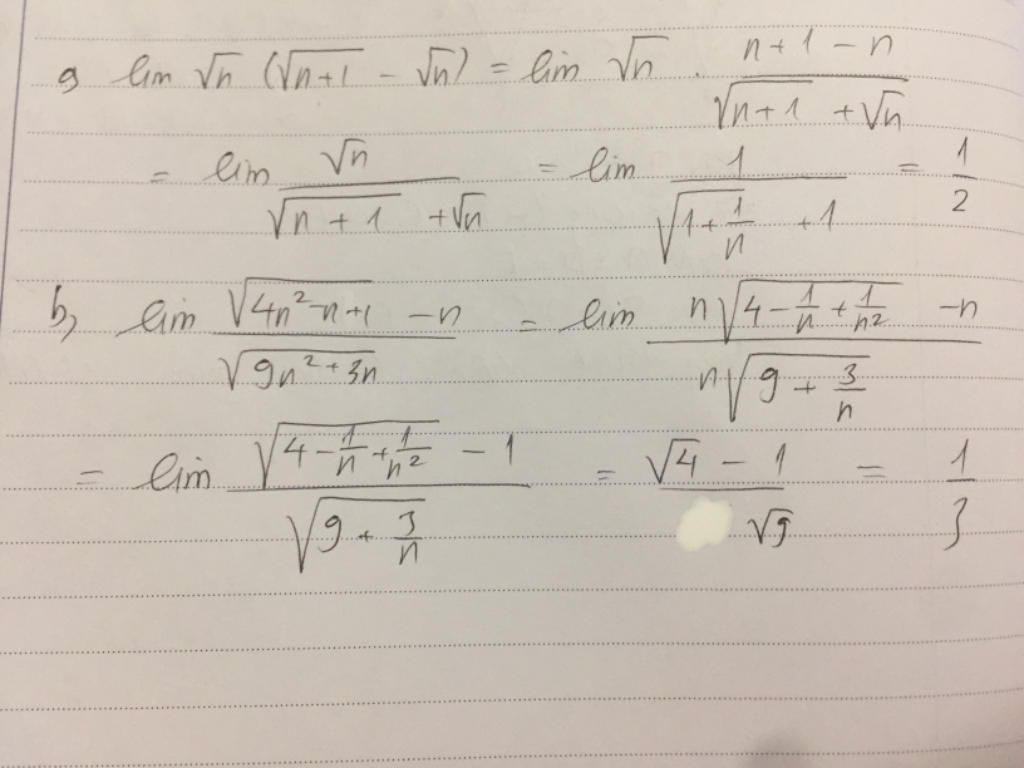 a, lim √n (√(n+1) - √n) = lim √n . (n+1-n)/(√(n+1) + √n)
= lim √n/(√(n+1) + √n) = lim 1/(√(1+1/n) + 1) = 1/2
b, lim (√(4n²-n+1) - n)/√(9n²+3n) = lim (n√(4 - 1/n + 1/n²) - n)/(n√(9 + 3/n))
= lim (√(4 - 1/n + 1/n²) - 1)/√(9 + 3/n) = (√4 - 1)/√9 = 1/3